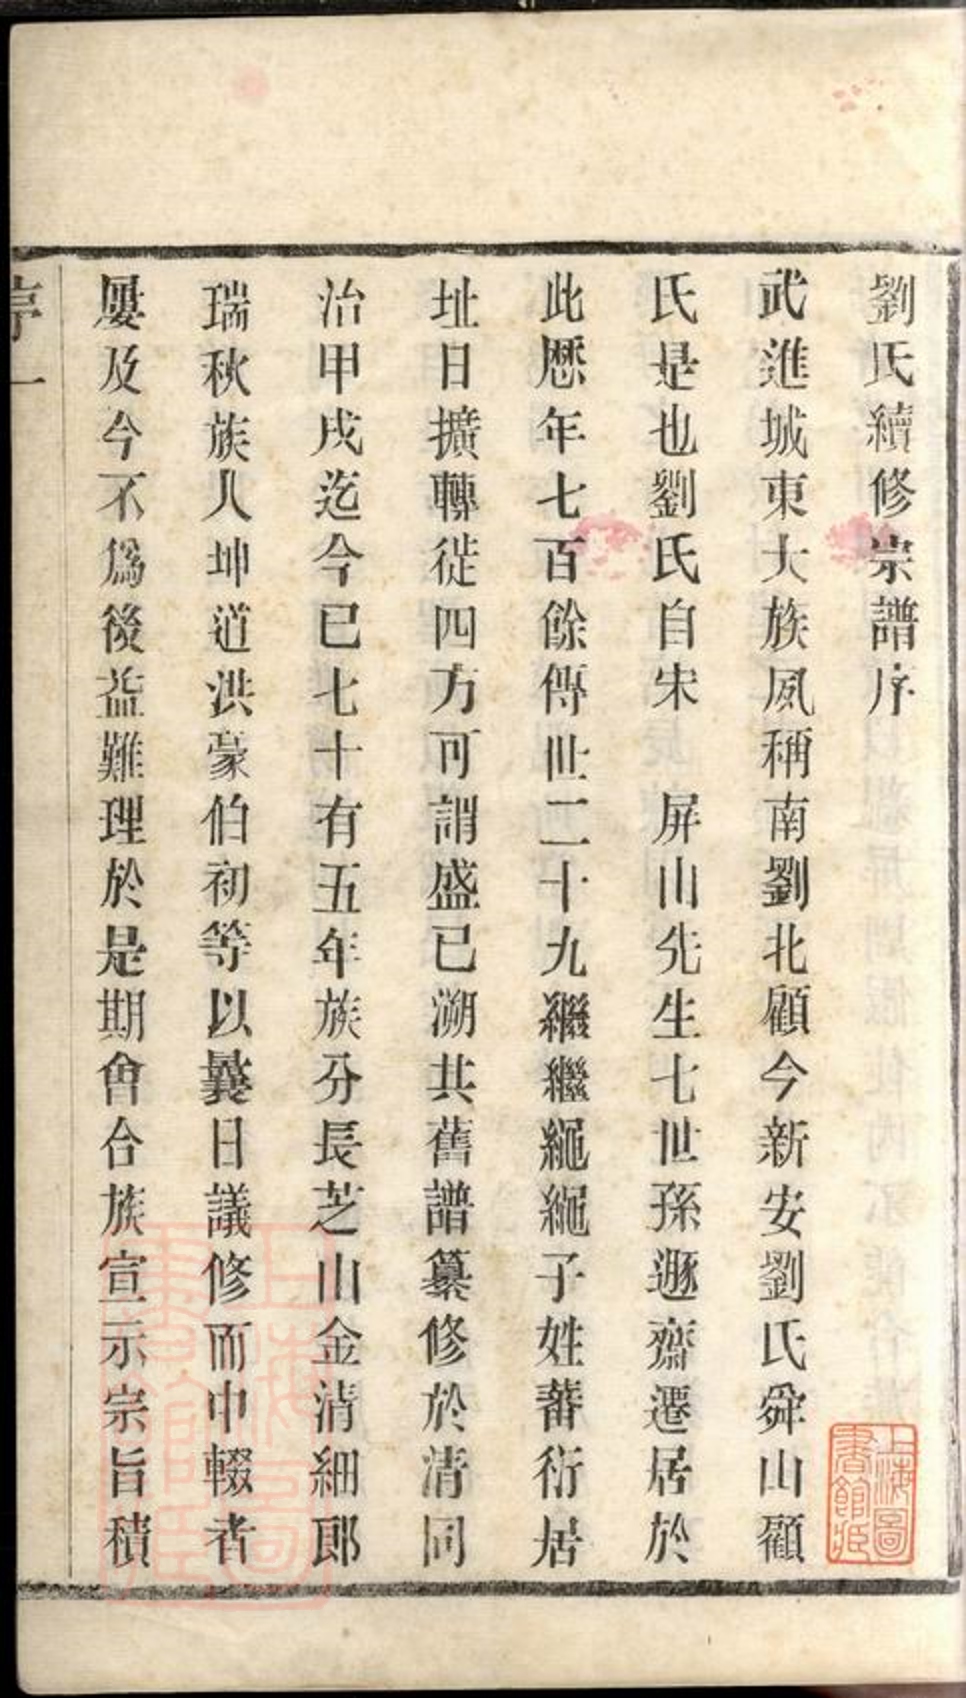 劉氏續修宗譜序
武進城東大族夙稱南劉北顧今新安劉氏舜山顧
氏是也劉氏自宋　屏山先生七世孫遯齋遷居於
此歷年七百餘傳世二十九繼繼繩繩子姓蕃衍居
址日擴轉徙四方可謂盛已溯其舊譜纂修於清同
治甲戌迄今已七十有五年族分長芝山金清細郎
瑞秋族人坤道洪蒙伯初等以曩日議修而中輟者
屢及今不爲後益難理於是期會合族宣示宗旨積
序 一
上海圖
書館藏
上海圖
書館藏